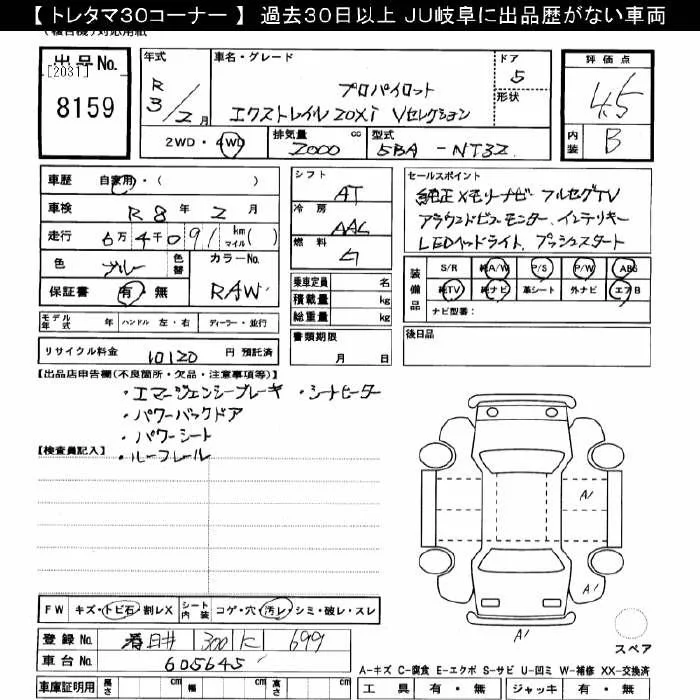 【 トレタマ30コーナー 】 過去30日以上 JU岐阜に出品歴がない車両
出品No.
[2031]
8159
年式
R
3/2月
車名・グレード
プロパイロット
エクストレイル 20Xi Vセレクション
ドア
5
形状
2WD・4WD
排気量 cc
2000
型式
5BA - NT32
評価点
4.5
内装
B
車歴 自家用・( )
車検 R 8 年 2 月
走行 6万4千091 km マイル( )
色 ブルー 色替 カラーNo.
保証書 有・無 RAW
シフト
AT
冷房
AAC
燃料
ガ
乗車定員 名
積載量 kg
総重量 kg
セールスポイント
純正メモリーナビ フルセグTV
アラウンドビューモニター、インテリキー
LEDヘッドライト、プッシュスタート
装備品
S/R 純A/W P/S P/W ABS
純TV 純ナビ 革シート 外ナビ エアB
ナビ型番:
モデル年式 ハンドル 左・右 ディーラー・並行
リサイクル料金 10120 円 預託済
書類期限
月 日
後日品
【出品店申告欄(不良箇所・欠品・注意事項等)】
・エマージェンシーブレーキ ・シートヒーター
・パワーバックドア
・パワーシート
・ルーフレール
【検査員記入】
A1
A1
A1
スペア
FW キズ・トビ石・割レX シート内装 コゲ・穴・汚レ・シミ・破レ・スレ
登録No. 春日井 300 に 699
車台No. 605645
車庫証明用 長さ cm 幅 cm 高さ cm
A-キズ C-腐食 E-エクボ S-サビ U-凹ミ W-補修 XX-交換済
工具 有・無 ジャッキ 有・無